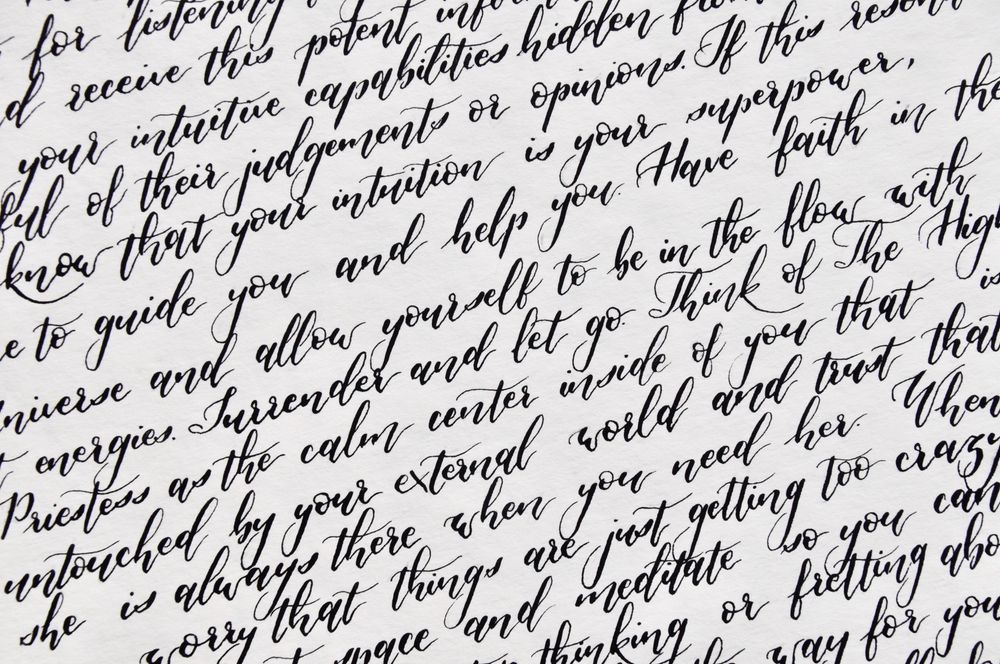 for listening
receive this potent
your intuitive capabilities hidden
of their judgements or opinions. If this
know that your intuition is your superpower,
to guide you and help you. Have faith in the
and allow yourself to be in the flow with
energies. Surrender and let go. Think of The
Priestess as the calm center inside of you that is
untouched by your external world and trust that
she is always there when you need her. When
worry that things are just getting too crazy
and meditate so you can
thinking or fretting
way for you